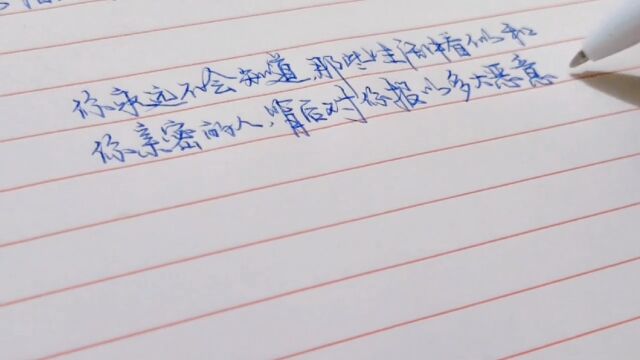 你永远不会知道,那些生活中看似和
你亲密的人,背后对你报以多大恶意